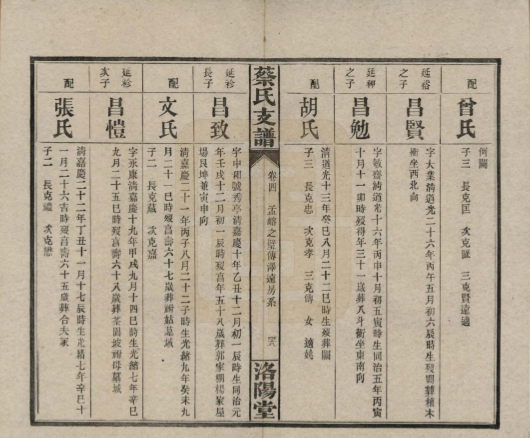 配
曾氏
何闕
子三 長克匡 次克匯 三克賢遠適
延裕之子
昌賢
字大業清道光二十六年丙午五月初六辰時生歿闕葬
衝坐西北向
延紳之子
昌勉
字敬齋清道光十六年丙申十月初五寅時生同治五年丙寅
十月十一卯時歿得年三十一歲葬八斗衝坐東南向
配
胡氏
清道光十三年癸巳八月二十二巳時生歿葬闕
子三 長克忠 次克孝 三克傳 女適
蔡氏支譜
卷四
孟
之
傳澤遠房系
洛陽堂
延衫長子
昌致
字中和號秀亭清嘉慶十年乙丑十二月初一辰時生同治元
年壬戌十二月初一辰時歿享年五十八歲葬郭家
屋
場艮坤兼寅申向
配
文氏
清嘉慶二十一年丙子八月二十二子時生光緒九年癸未九
月二十一巳時歿享壽六十八歲葬
子二 長克歲 次克
延衫次子
昌愷
字永康清嘉慶十九年甲戌九月十四巳時生光緒七年辛巳
九月二十五巳時歿享壽六十八歲葬茶園坡
母墓
配
張氏
清嘉慶二十二年丁丑十一月十七辰時生光緒七年辛巳十
一月二十六吉時歿享壽六十五歲葬合夫冢
子二 長克禮 次克懋